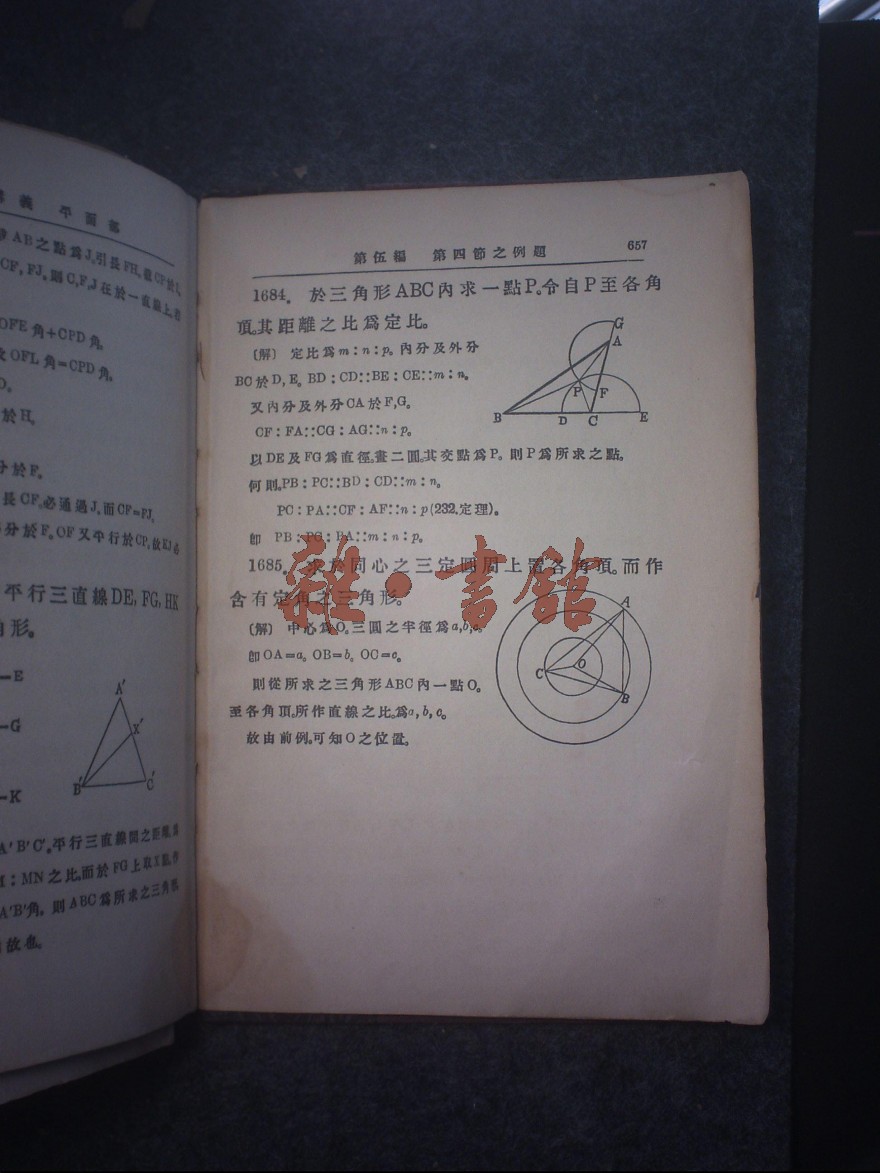 義 平面部
AB之點爲J。引長FH。
CF, FJ。則C,F,J在於一直線上。
OFE角+CPD角。
OFL角=CPD角。
D。
於H。
於F。
長CF。必通過J。而CF=FJ。
分於F。OF又平行於CP。故
平行三直線DE, FG, HK
形。
—E
—G
—K
A'
X'
B'
C'
A'B'C'。平行三直線間之距離。
: MN之比。而於FG上取X點。作
A'B'角。則ABC爲所求之三角形。
故也。
第伍編 第四節之例題
657
1684。 於三角形ABC內求一點P。令自P至各角
頂。其距離之比爲定比。
(解) 定比爲m:n:p。內分及外分
BC於D, E。BD:CD::BE:CE::m:n。
又內分及外分CA於F,G。
CF:FA::CG:AG::n:p。
以DE及FG爲直徑。畫二圓。其交點爲P。則P爲所求之點。
何則。PB:PC::BD:CD::m:n。
PC:PA::CF:AF::n:p(232.定理)。
卽 PB:PC:PA::m:n:p。
G
A
P
F
B
D
C
E
1685。 求於同心之三定圓周上置各角頂。而作
含有定角之三角形。
(解) 中心爲O。三圓之半徑爲a,b,c。
卽OA=a。OB=b。OC=c。
則從所求之三角形ABC內一點O。
至各角頂。所作直線之比。爲a,b,c。
故由前例。可知O之位置。
A
O
C
B
雜·書館